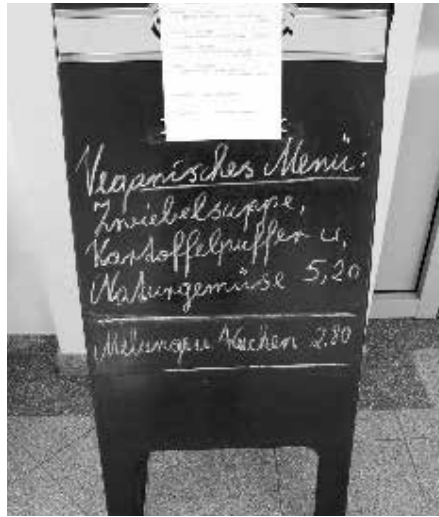 Veganisches Menü:
Zwiebelsuppe,
Kartoffelpuffer u.
Naturgemüse 5,20
Melange u Kuchen 2,80